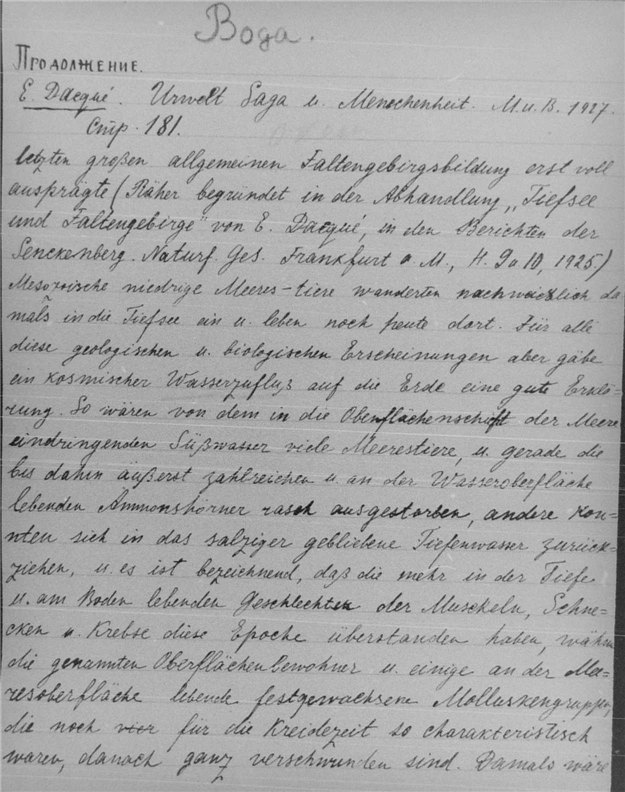 Вода.
Продолжение.
E. Dacqué. Urwelt Saga u. Menschenheit. M.u.B. 1927.
Стр. 181.
letzten großen allgemeinen Faltengebirgsbildung erst voll
ausprägte (Näher begründet in der Abhandlung „Tiefsee
und Faltengebirge" von E. Dacqué, in den Berichten der
Senckenberg. Naturf. Ges. Frankfurt a. M., H. 9 u 10, 1925.)
Mesozoische niedrige Meeres-tiere wanderten nachweislich da
mals in die Tiefsee ein u. leben noch heute dort. Für alle
diese geologischen u. biologischen Erscheinungen aber gäbe
ein kosmischer Wasserzufluss auf die Erde eine gute Erklä-
rung. So wären von dem in die Oberflächenschift der Meere
eindringenden Süßwasser viele Meerestiere, u. gerade die
bis dahin äußerst zahlreichen u. an der Wasseroberfläche
lebenden Ammonshörner rasch ausgestorben, andere kon-
nten sich in das salziger gebliebene Tiefenwasser zurück-
ziehen, u. es ist bezeichnend, daß die mehr in der Tiefe
u. am Boden lebenden Geschlechten der Muscheln, Schne-
cken u. Krebse diese Epoche überstanden haben, währe
die genannten Oberflächenbewohner u. einige an der Mee-
resoberfläche lebende festgewachsene Molluskengruppen,
die noch vier für die Kreidezeit so charakteristisch
waren, danach ganz verschwunden sind. Damals wäre